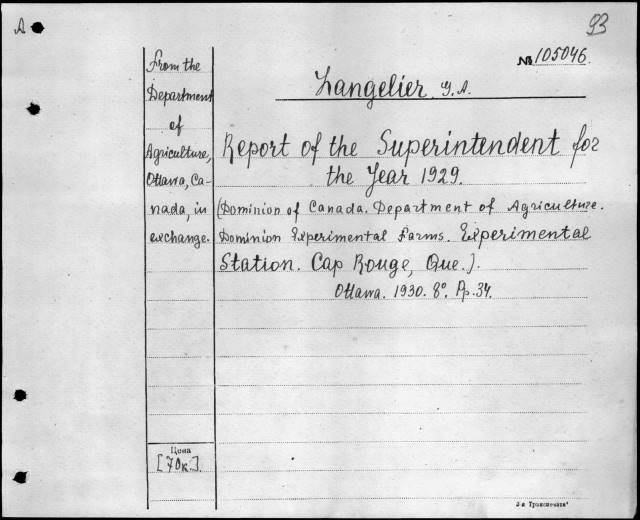 A
93
№ 105046.
Langelier, G.A.
From the
Department
of
Agriculture,
Ottawa, Ca-
nada, in
exchange.
Report of the Superintendent for
the Year 1929.
(Dominion of Canada. Department of Agriculture.
Dominion Experimental Farms. Experimental
Station. Cap Rouge, Que.).
Ottawa. 1930. 8°. Pp. 34.
Цена
[70к.].